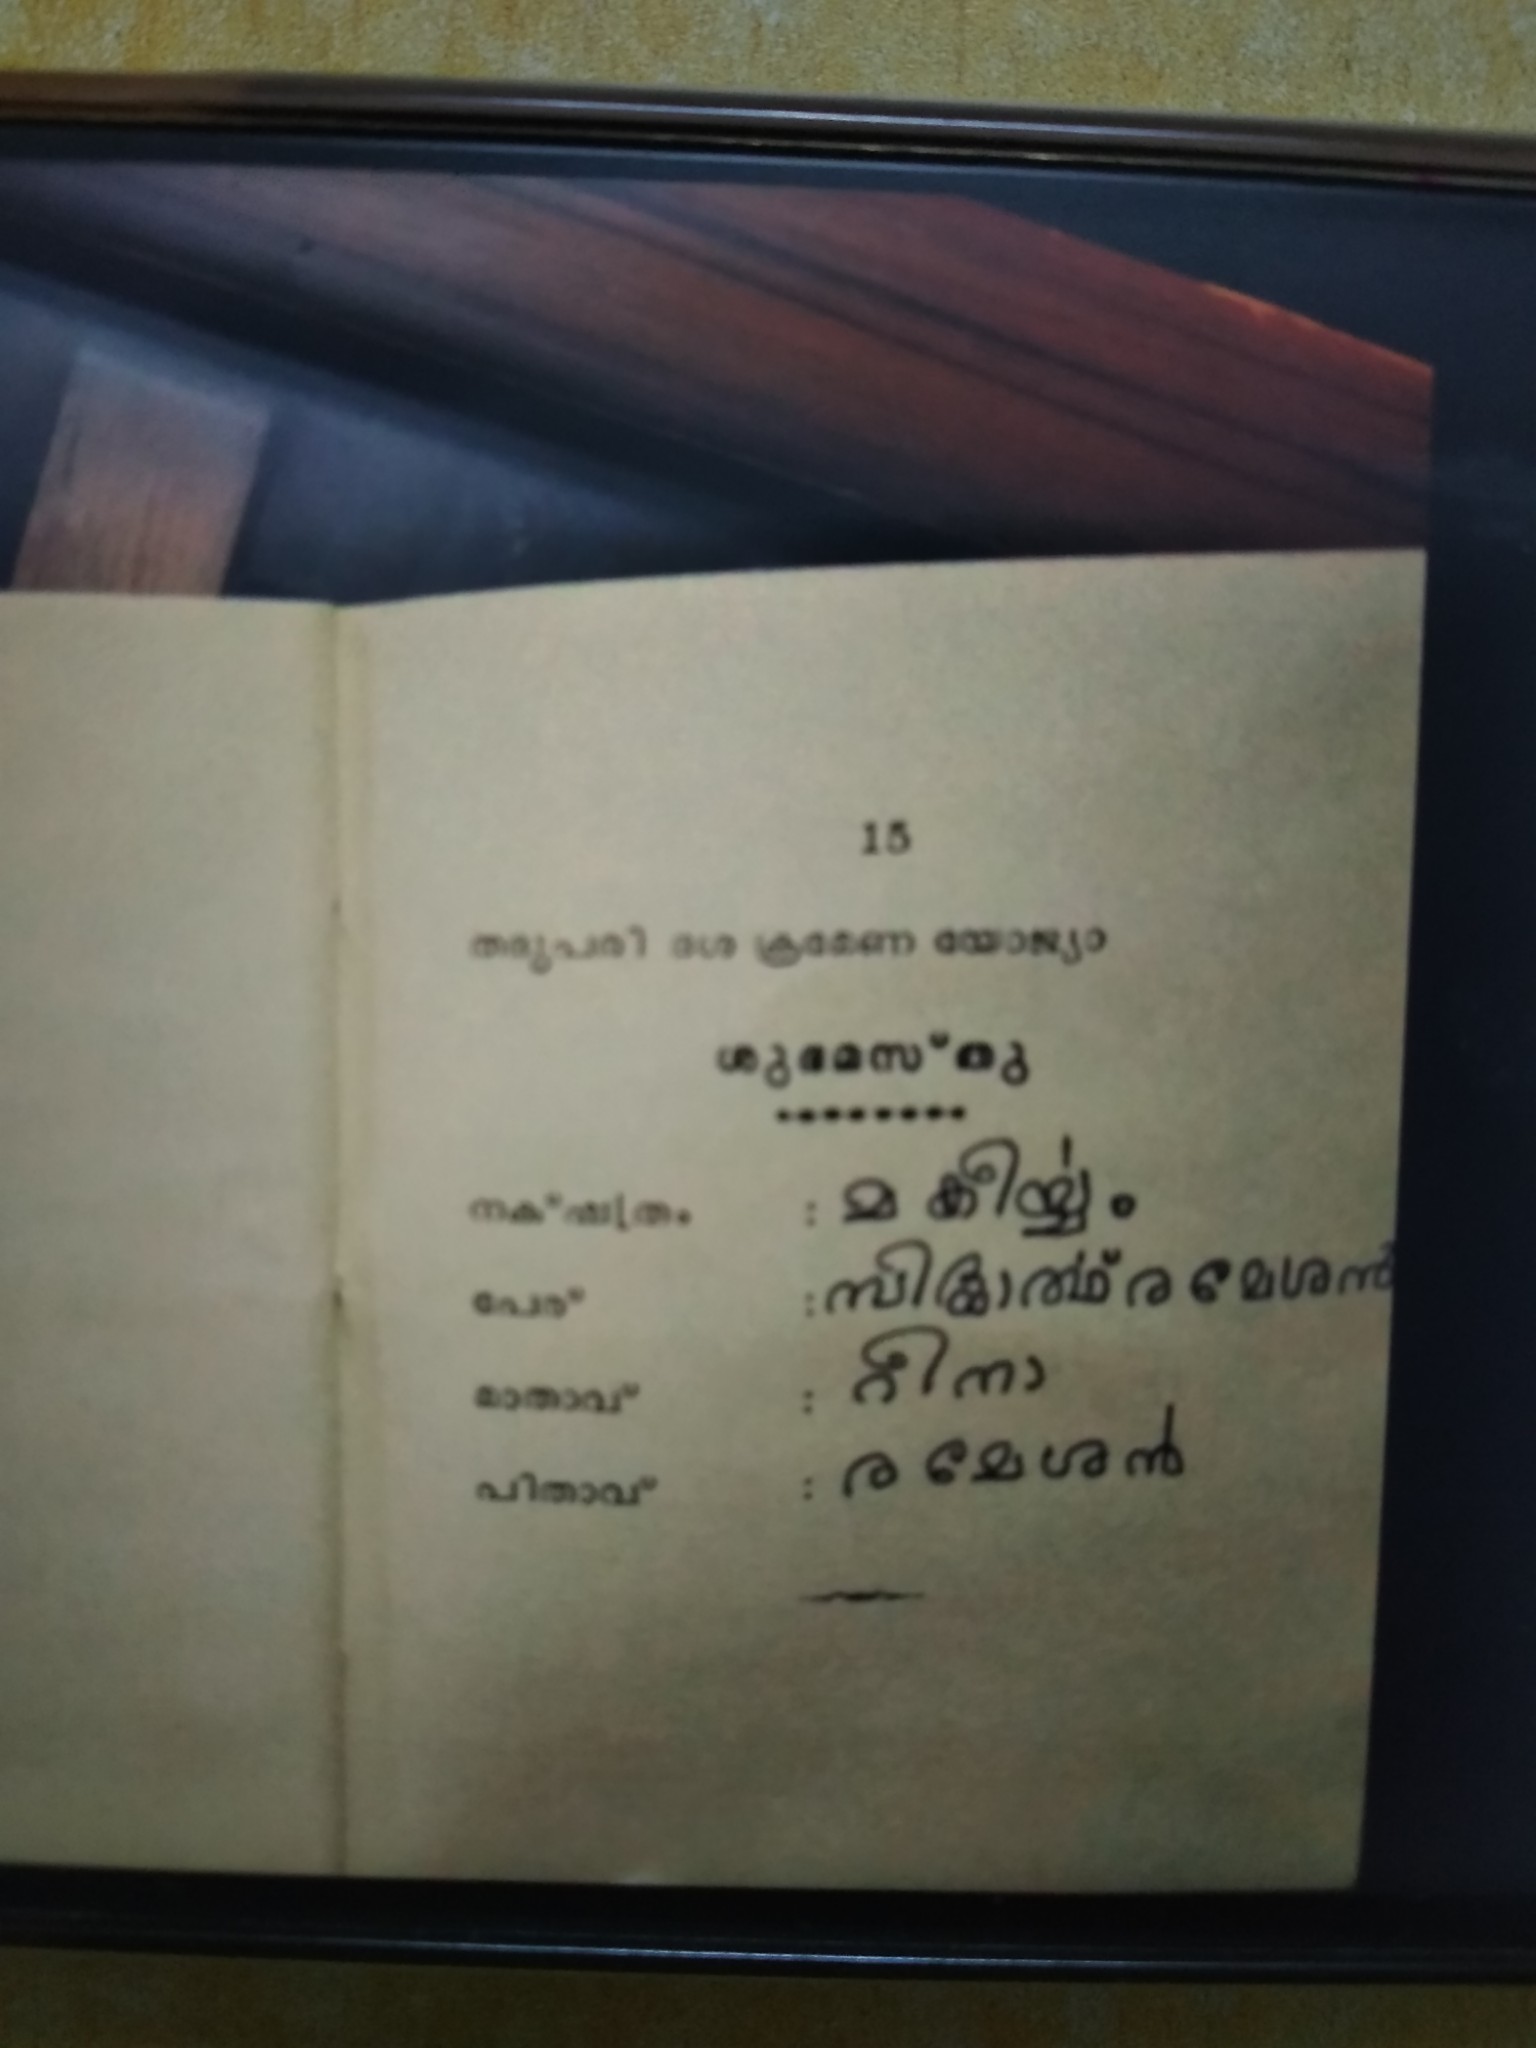 15
തദുപരി ദശ ക്രമേണ യോജ്യാ
ശുഭമസ്തു
നക്ഷത്രം : മകീര്യം
പേര് : സിദ്ധാർത്ഥ് രമേശൻ
മാതാവ് : റീനാ
പിതാവ് : രമേശൻ